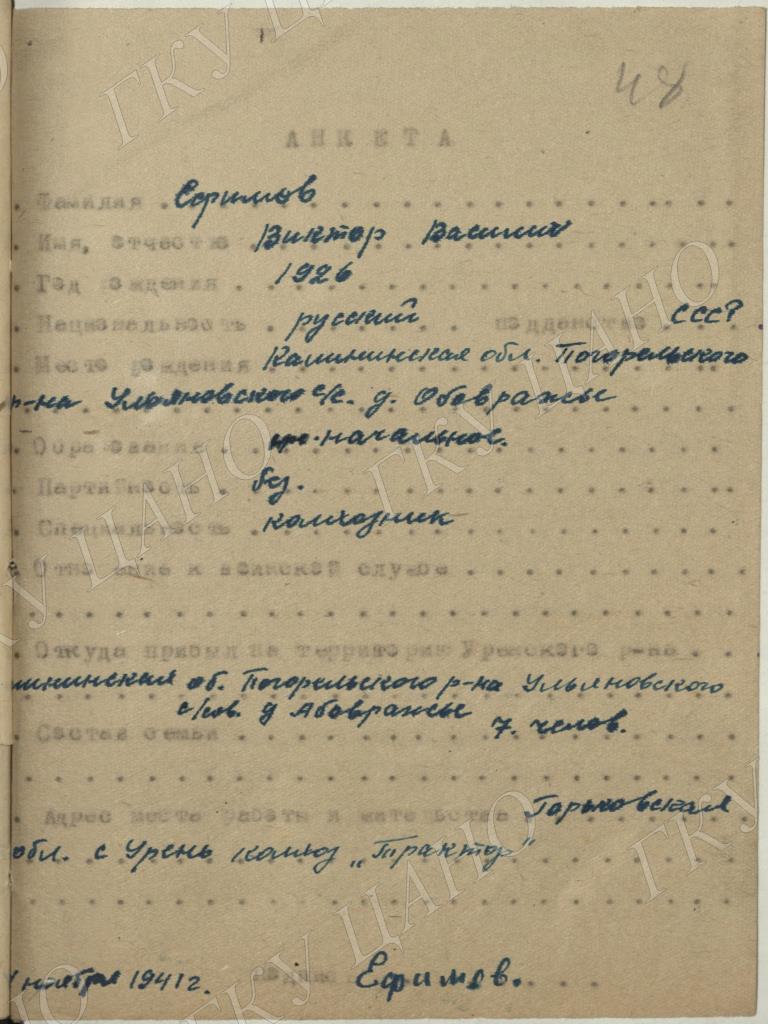 48
АНКЕТА
Фамилия Ефимов
Имя, отчество Виктор Василич
Год рождения 1926
Национальность русский подданство СССР
Место рождения Калининская обл. Погорельского
р-на Ульяновского с/с. д. Обовражье
Образование начальное.
Партийность бз.
Специальность колхозник
Отношение к воинской службе
Откуда прибыл на территорию Уренского р-на
лининская об. Погорельского р-на Ульяновского
с/сов. д Абовражье
Состав семьи 7. челов.
Адрес места работы и жительства Горьковская
обл. с Урень колхоз „Трактор"
ноября 1941 г. подпись Ефимов.
ГКУ ЦАНО